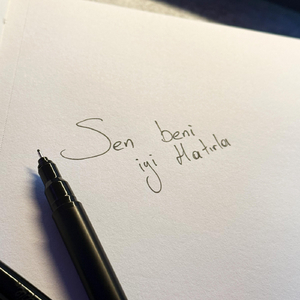 Sen beni
iyi Hatırla